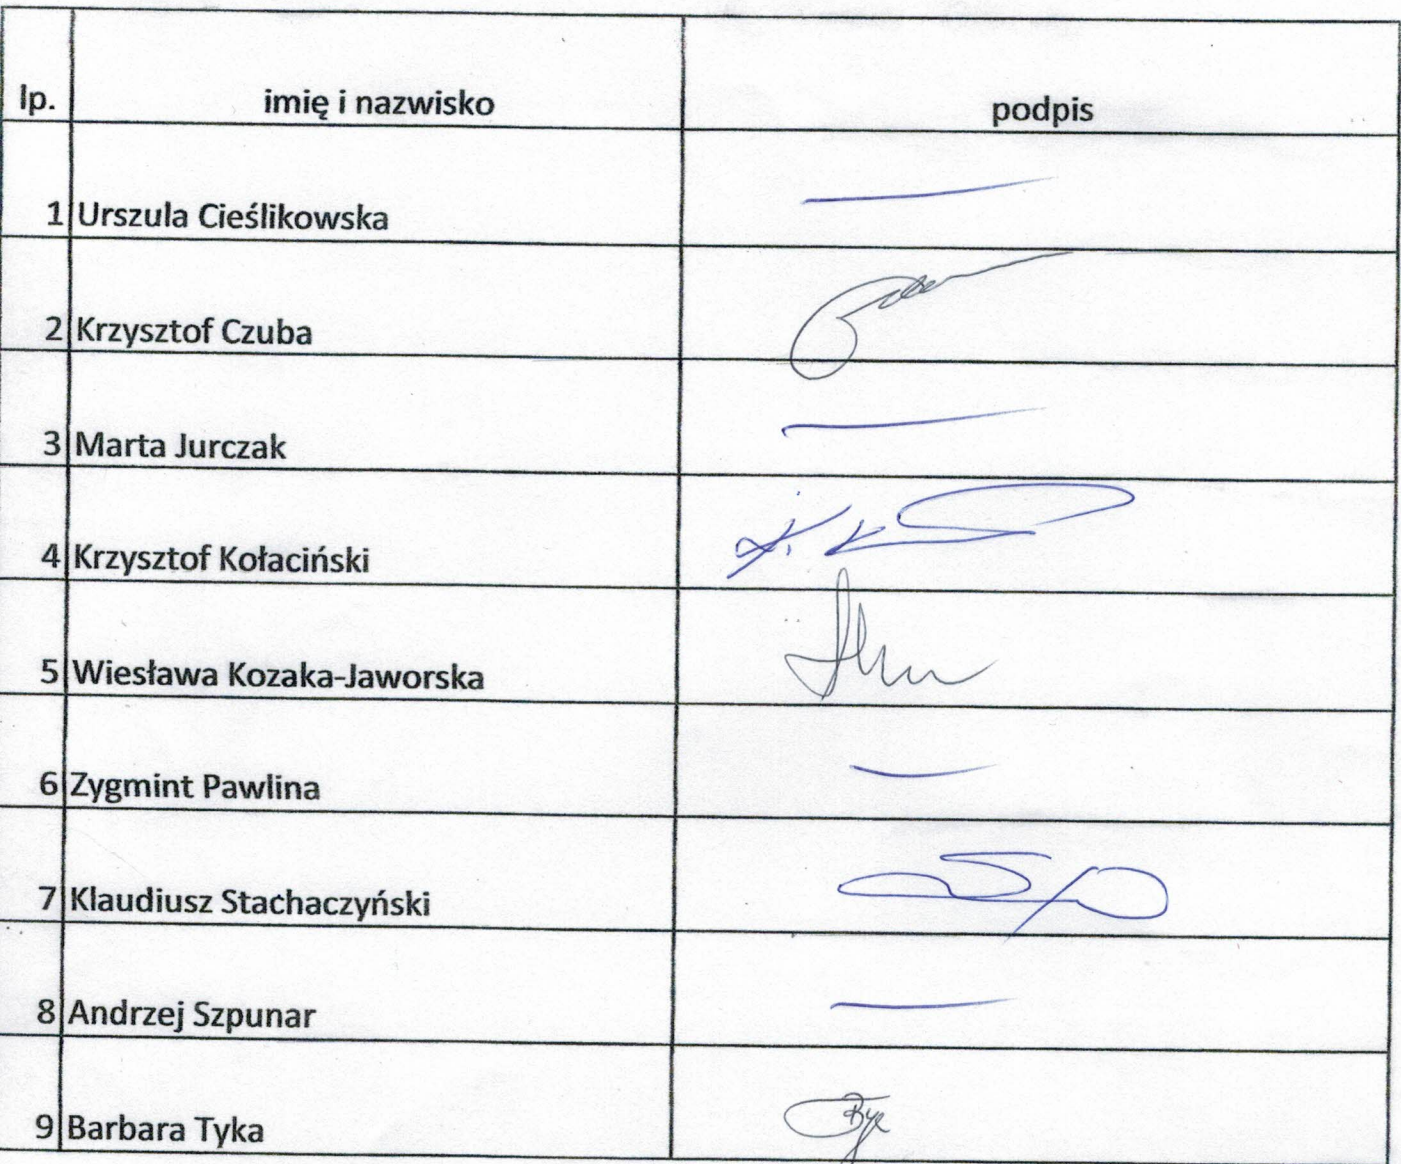 lp. imię i nazwisko podpis
1 Urszula Cieślikowska
2 Krzysztof Czuba
3 Marta Jurczak
4 Krzysztof Kołaciński
5 Wiesława Kozaka-Jaworska
6 Zygmint Pawlina
7 Klaudiusz Stachaczyński
8 Andrzej Szpunar
9 Barbara Tyka